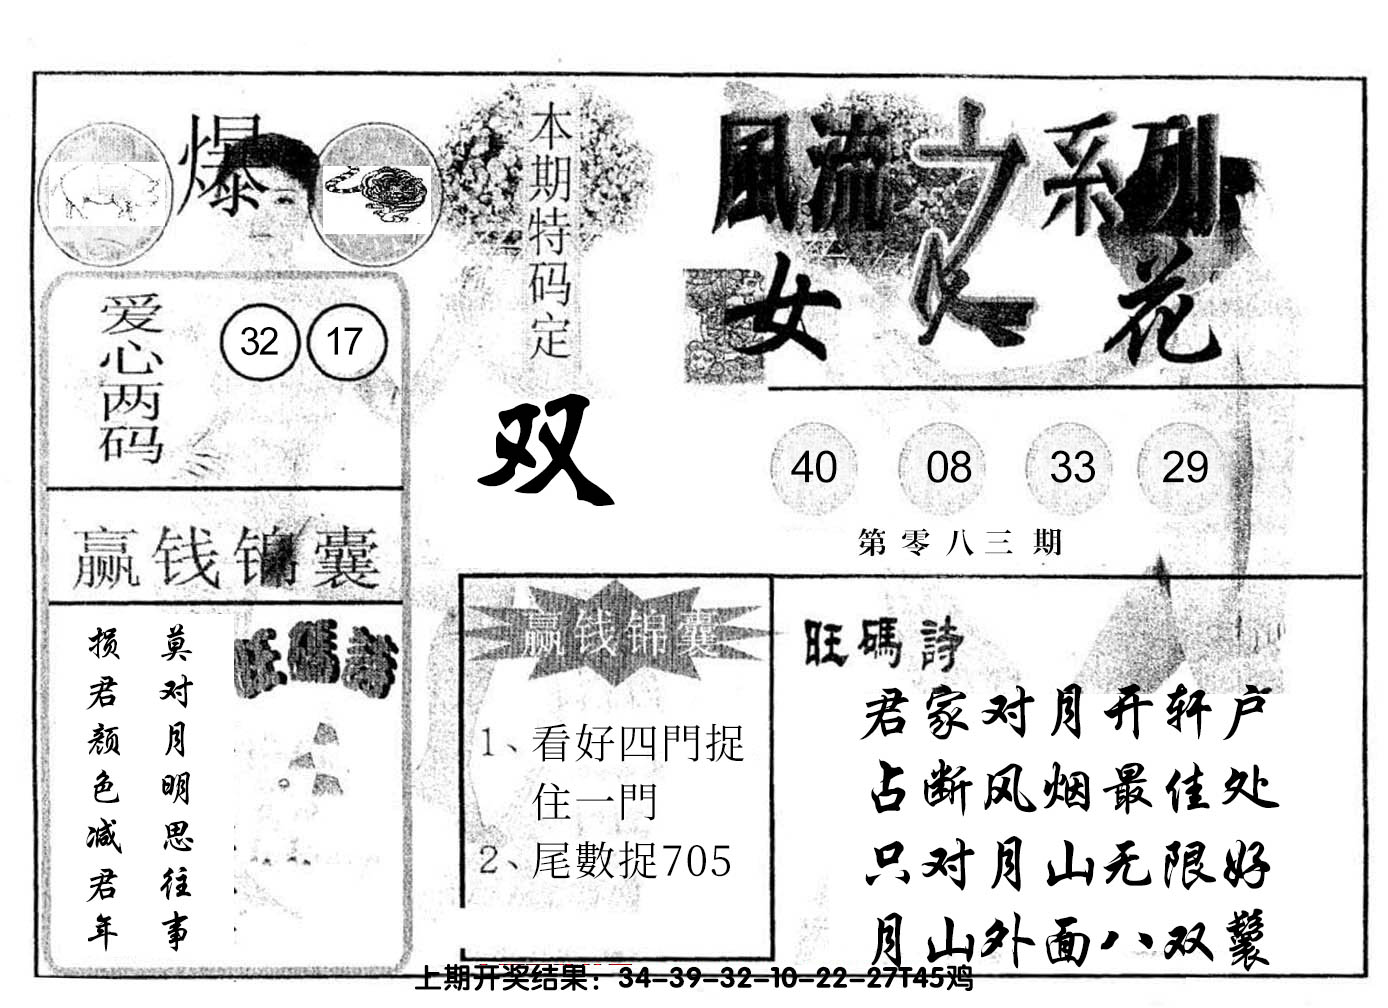 爆
本期特码定
双
風流之系列
女人花
爱心两码
32 17
40 08 33 29
第零八三期
赢钱锦囊
莫对月明思往事
损君颜色减君年
旺碼詩
赢钱锦囊
1、看好四門捉
住一門
2、尾數捉705
旺碼詩
君家对月开轩户
占断风烟最佳处
只对月山无限好
月山外面八双鬟
上期开奖结果：34-39-32-10-22-27T45鸡